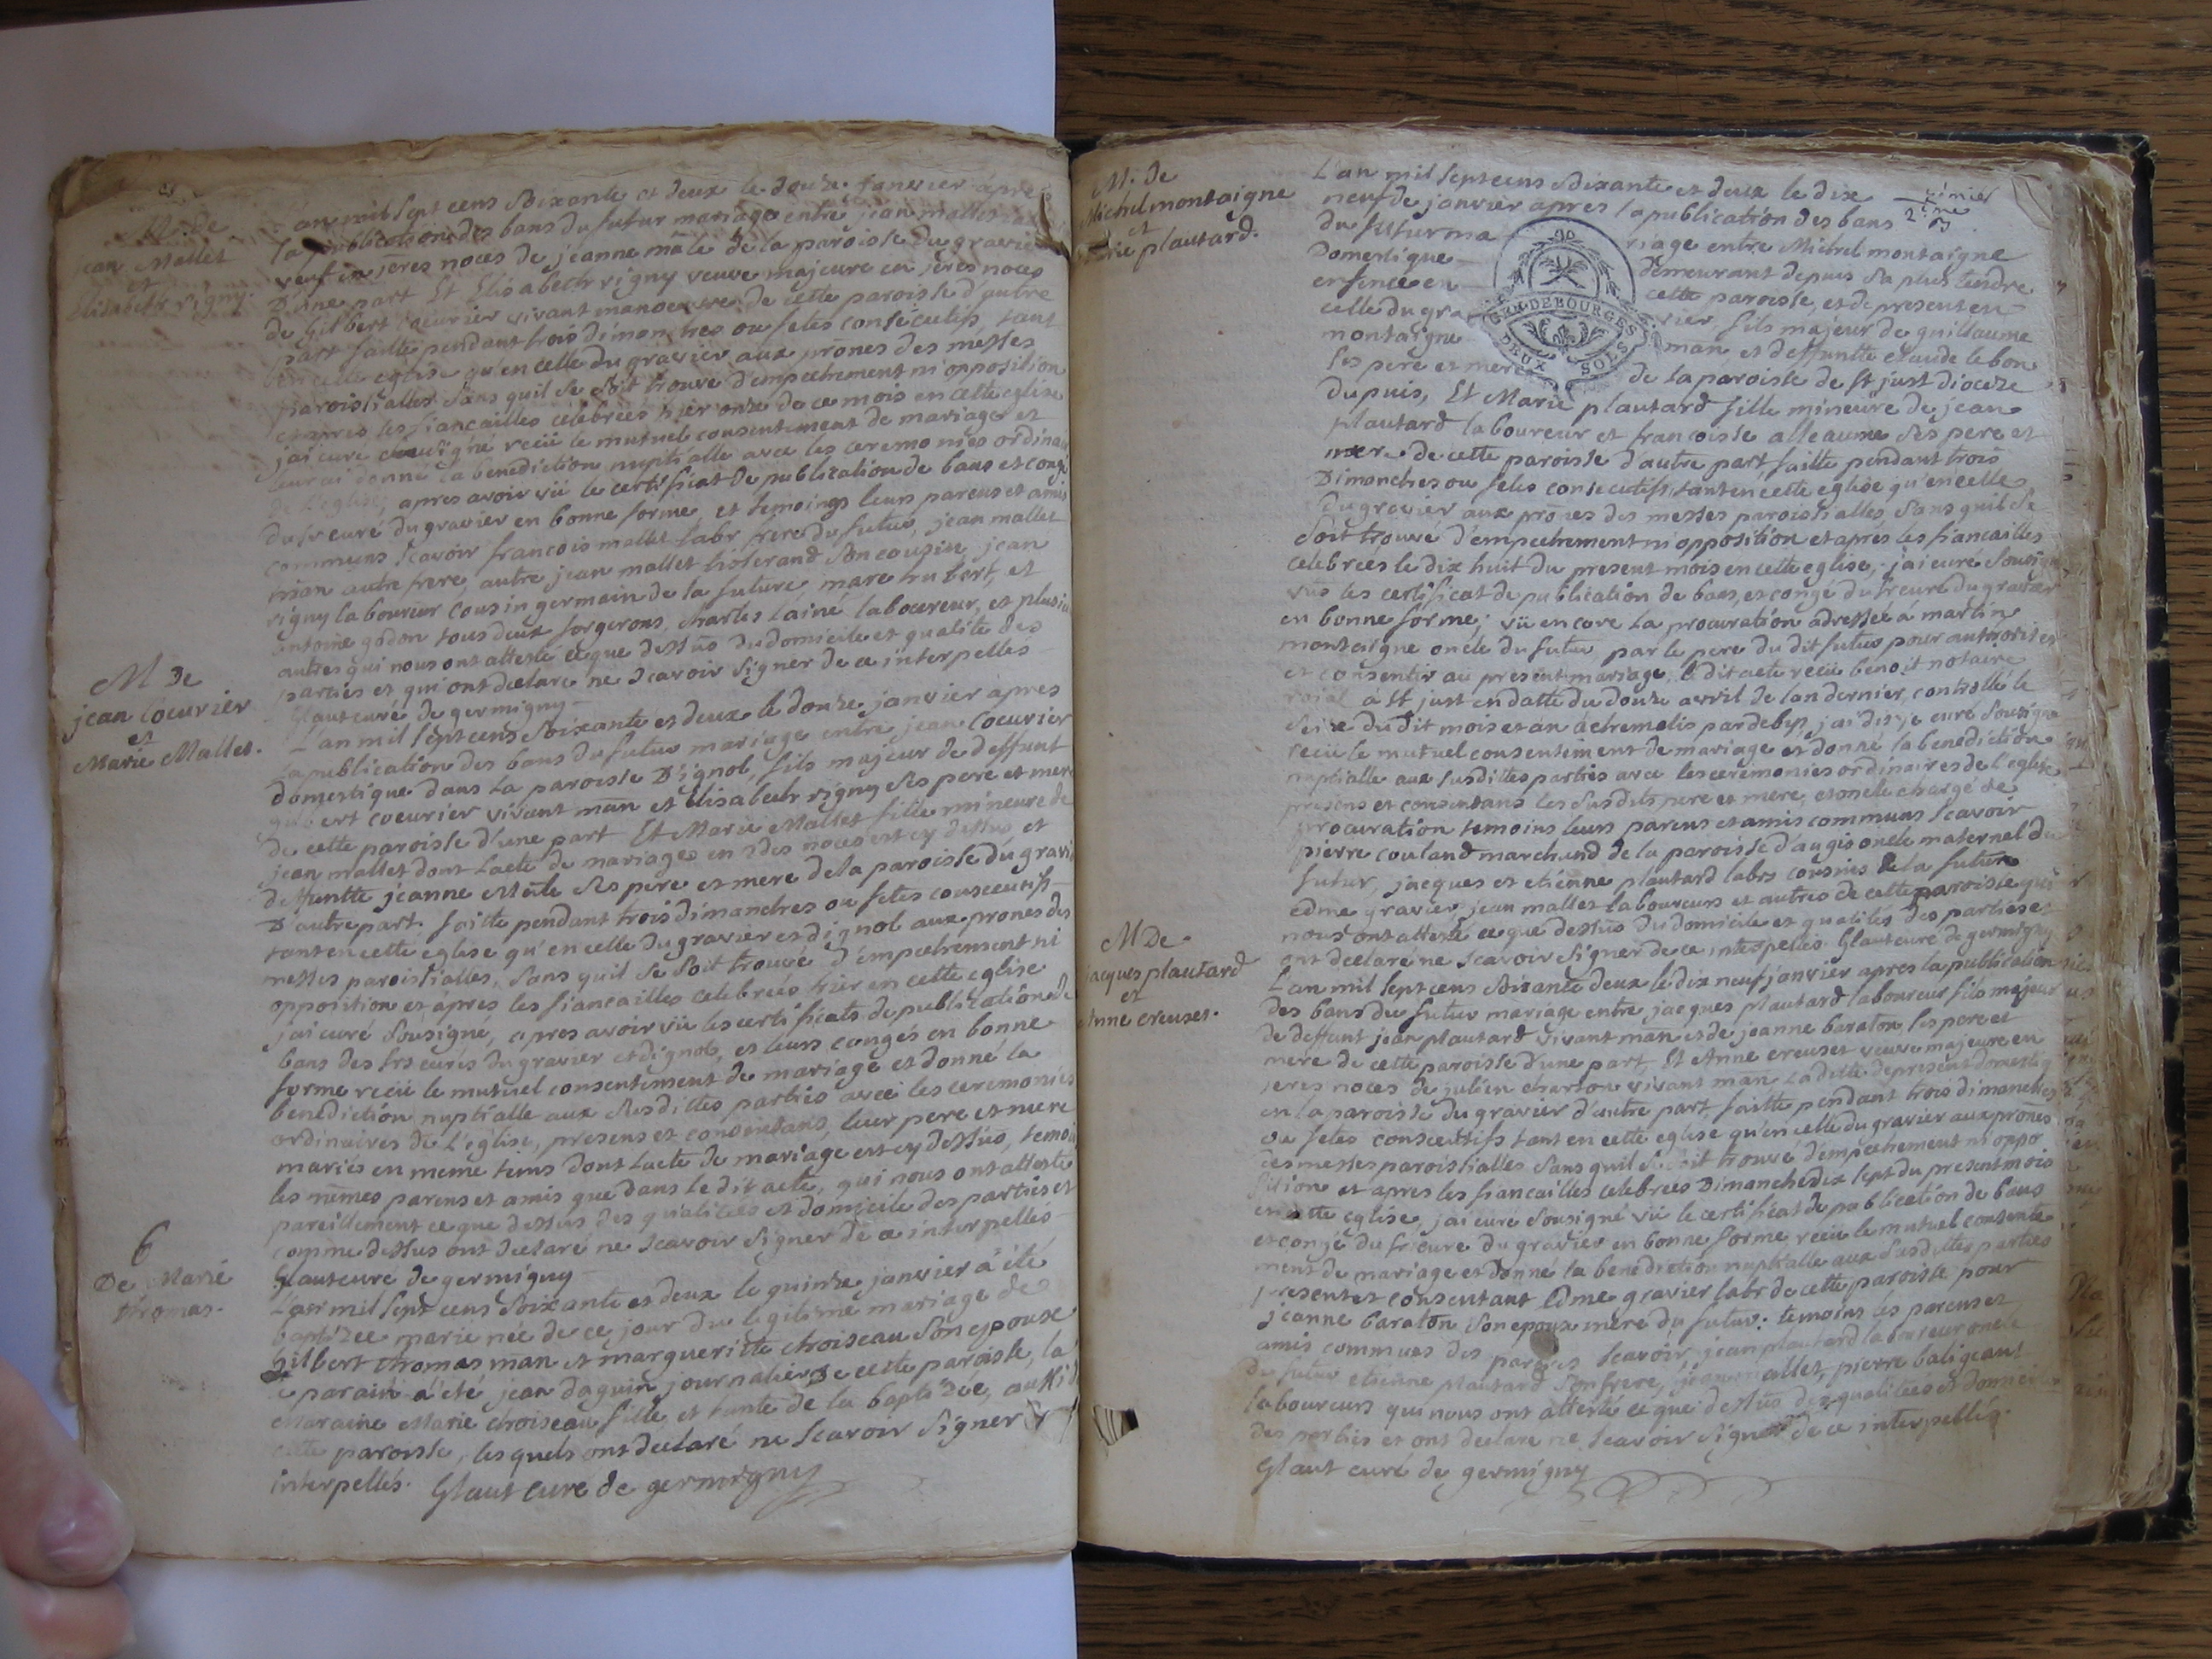 M. de
jean Mallet
et
Elisabeth rigny.
L'an mil sept cens soixante et deux le douze janvier apres
la publication des bans du futur mariage entre jean mallet
veuf en 1eres noces de jeanne mâle de la paroisse du gravier
D'une part Et Elisabeth rigny veuve majeure en 1eres noces
de Gilbert coeurier vivant manoeuvre de cette paroisse d'autre
part faitte pendant trois dimanches ou fetes consécutifs, tant
en cette eglise qu'en celle du gravier aux prônes des messes
paroissialles sans quil se soit trouvé d'empechement ni opposition
et apres les fiancailles celebrées hier onze de ce mois en cette eglise
j'ai curé sousigné reçü le mutuel consentement de mariage et
leur ai donné la benediction nuptialle avec les ceremonies ordinaires
de l'eglise, apres avoir vü le certificat de publication de bans et congé
du sr curé du gravier en bonne forme, et temoings leurs parens et amis
communs scavoir francois mallet labr frere du futur, jean mallet
man autre frere, autre jean mallet tisserand son cousin, jean
rigny laboureur cousin germain de la future, marc hubert, et
antoine godon tous deux forgerons, charles lainé laboureur, et plusieurs
autres qui nous ont attesté ce que dessus du domicile et qualité des
parties et qui ont declaré ne scavoir signer de ce interpellés
Glaut curé de germigny
M de
jean Coeurier
et
Marie Mallet.
L'an mil sept cens soixante et deux le douze janvier apres
la publication des bans du futur mariage entre jean Coeurier
domestique dans la paroisse D'ignol, fils majeur de deffunt
gilbert coeurier vivant man et Elisabeth rigny ses pere et mere
de cette paroisse d'une part Et Marie Mallet fille mineure de
jean mallet dont l'acte de mariage en 2des noces est cy dessus et
deffuntte jeanne Mâle ses pere et mere de la paroisse du gravier
D'autre part. faitte pendant trois dimanches ou fetes consecutifs
tant en cette eglise qu'en celle du gravier et dignol aux prones des
messes paroissialles, sans quil se soit trouvé d'empechement ni
opposition et apres les fiancailles celebrées hier en cette eglise
j'ai curé sousigné, apres avoir vü les certificats de publication de
bans des srs curés du gravier et dignol, et leurs congés en bonne
forme reçü le mutuel consentement de mariage et donné la
benediction nuptialle aux susdittes parties avec les ceremonies
ordinaires de l'eglise, presens et consentans, leur pere et mere
mariés en meme tems dont l'acte de mariage est cy dessus, temoins
les mêmes parens et amis que dans le dit acte, qui nous ont attesté
pareillement ce que dessus des qualités et domicile des parties et
comme dessus ont declaré ne scavoir signer de ce interpellés
Glaut curé de germigny
6
De Marie
thomas.
L'an mil sept cens soixante et deux le quinze janvier a été
baptizée marie née de ce jour du legitime mariage de
gilbert thomas man et margueritte choiseau son epouse
le parain a été jean daguin journalier de cette paroisse, la
Maraine Marie choiseau fille et tante de la baptizée, aussi de
cette paroisse, lesquels ont declaré ne scavoir signer
interpellés. Glaut curé de germigny
M. de
Michel montaigne
et
marie plautard.
L'an mil sept cens soixante et deux le dix
neuf de janvier apres la publication des bans
du futur mariage entre Michel montaigne
Domestique demeurant depuis sa plus tendre
enfence en cette paroisse, et de present en
celle du gravier, fils majeur de guillaume
montaigne man et deffuntte claude lebon
ses pere et mere de la paroisse de st just dioceze
du puis, Et Marie plautard fille mineure de jean
plautard laboureur et francoisse alleaume ses pere et
mere de cette paroisse d'autre part faitte pendant trois
Dimanches ou fetes consecutifs, tant en cette eglise qu'en celle
du gravier aux prônes des messes paroissialles sans quil se
soit trouvé d'empechement ni opposition et aprés les fiancailles
celebrées le dix huit du present mois en cette eglise, j'ai curé sousigné
vüs les certificat de publication de bans, et congé du sr curé du gravier
en bonne forme, vü encore la procuration adressée à martin
montaigne oncle du futur, par le pere du dit futur pour authoriser
et consentir au present mariage, le dit acte reçü benoit notaire
roial à st just en datte du douze avril de l'an dernier, controllé le
seize du dit mois et an
reçü le mutuel consentement de mariage et donné la benediction
nuptialle aux susdittes parties avec les ceremonies ordinaires de l'eglise
presens et consentans les susdits pere et mere, et oncle chargé de
procuration temoins leurs parens et amis communs scavoir
pierre couland marchand de la paroisse d'augi oncle maternel du
futur, jacques et etienne plautard labrs cousins de la future
edme gravier, jean mallet laboureurs et autres de cette paroisse qui
nous ont attesté ce que dessus du domicile et qualités des parties et
ont declaré ne scavoir signer de ce interpellés. Glaut curé de germigny
M De
jacques plautard
et
Anne creuzet.
L'an mil sept cens soixante deux le dix neuf janvier apres la publication
des bans du futur mariage entre jacques plautard laboureur fils majeur
de deffunt jean plautard vivant man et de jeanne baraton, ses pere et
mere de cette paroisse d'une part, Et Anne creuset veuve majeure en
1eres noces de julien charton vivant man la ditte de present domestiq
en la paroisse du gravier d'autre part faitte pendant trois dimanches
ou fetes consecutifs tant en cette eglise qu'en celle du gravier aux prônes
des messes paroissialles sans quil se soit trouvé d'empechement ni oppo
sition et apres les fiancailles celebrées Dimanche dix sept du present mois
en cette eglise, j'ai curé sousigné vü le certificat de publication de bans
et congé du sr curé du gravier en bonne forme reçü le mutuel consente
ment de mariage et donné la benediction nuptialle aux susdittes parties
present et consentant Edme gravier labr de cette paroisse pour
jeanne baraton son epouse mere du futur: temoins les parens et
amis communs des parties scavoir jean plautard laboureur oncle
du futur etienne plautard son frere, jean mallet, pierre baligeant
laboureurs qui nous ont attesté ce que dessus des qualitées et domicile
des parties et ont declaré ne scavoir signer de ce interpellés.
Glaut curé de germigny
GEN. DE BOURGES
DEUX SOLS